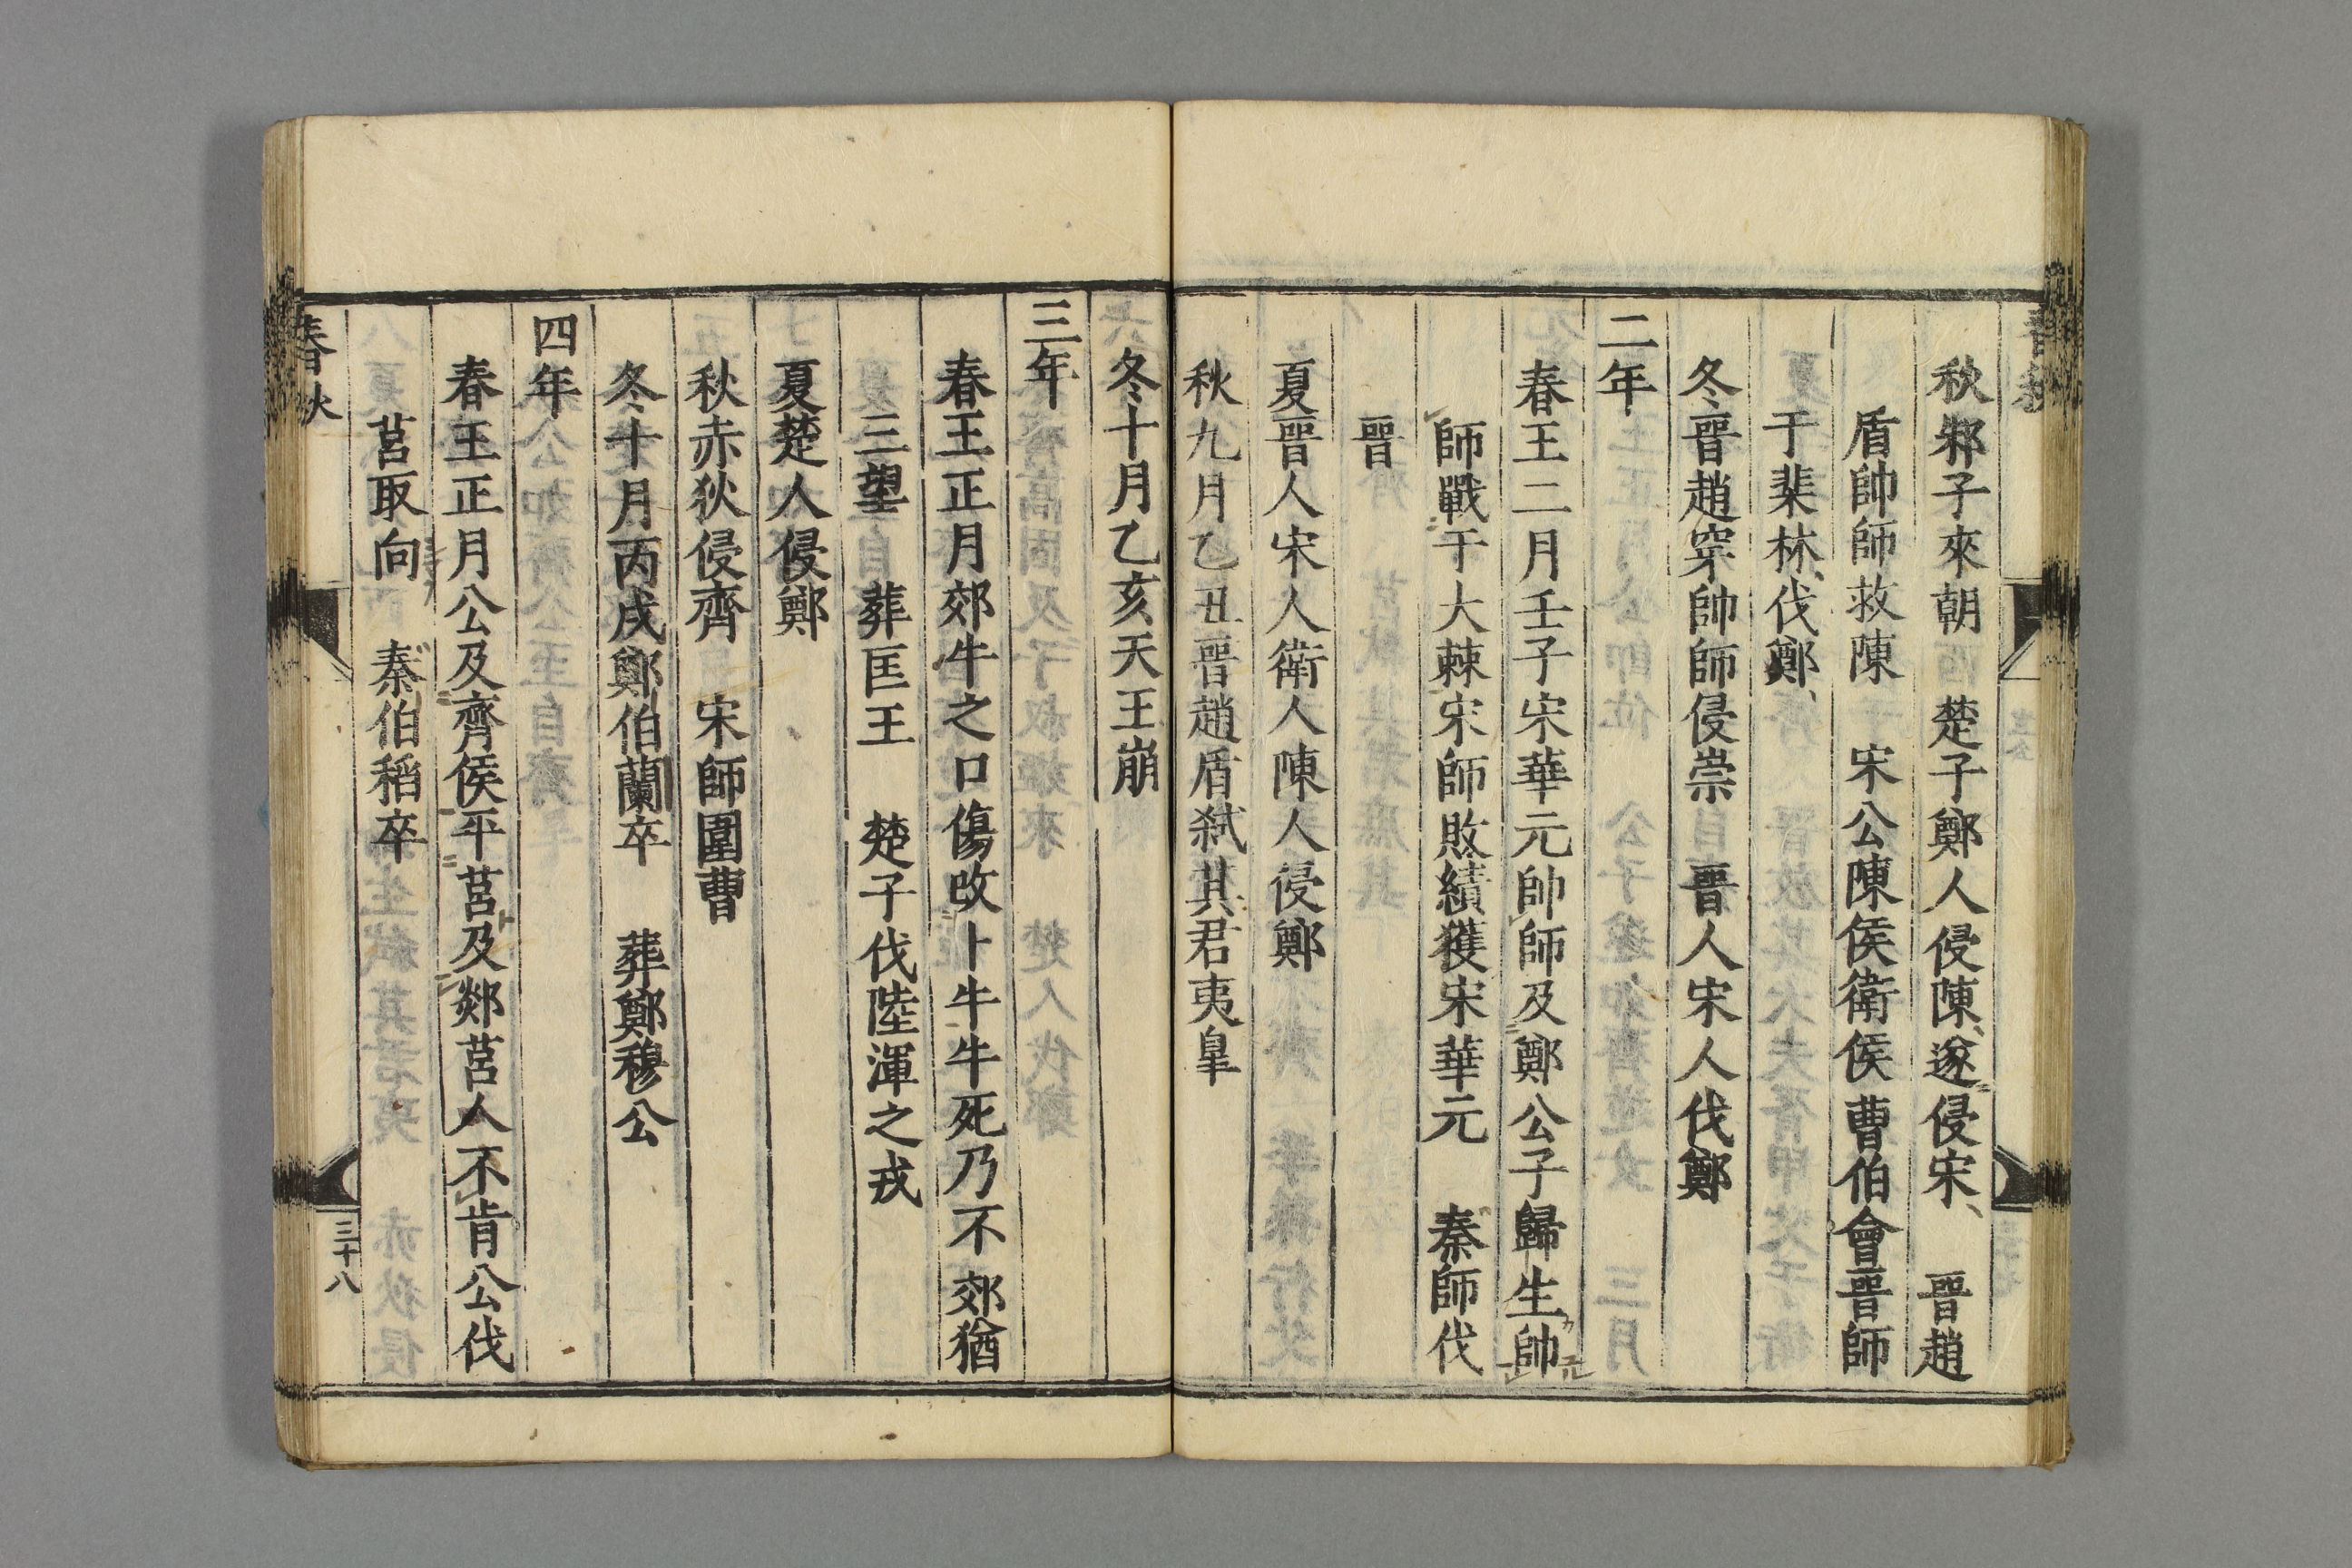 秋邾子來朝 楚子鄭人侵陳遂侵宋 晉趙
盾帥師救陳 宋公陳侯衛侯曹伯會晉師
于棐林伐鄭
冬晉趙穿帥師侵崇 晉人宋人伐鄭
二年
春王二月壬子宋華元帥師及鄭公子歸生帥
師戰于大棘宋師敗績獲宋華元 秦師伐
晉
夏晉人宋人衛人陳人侵鄭
秋九月乙丑晉趙盾弑其君夷皐
冬十月乙亥天王崩
三年
春王正月郊牛之口傷改卜牛牛死乃不郊猶
三望 葬匡王 楚子伐陸渾之戎
夏楚人侵鄭
秋赤狄侵齊 宋師圍曹
冬十月丙戌鄭伯蘭卒 葬鄭穆公
四年
春王正月公及齊侯平莒及郯莒人不肯公伐
莒取向 秦伯稻卒
春秋
三十八